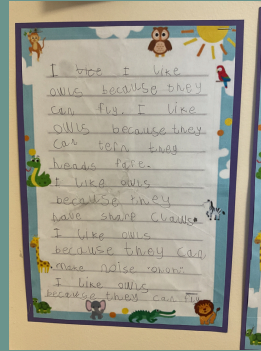 I I like
owls because they
can fly. I like
owls because they
can tern they
heads fare.
I like owls
because they
have sharp claws.
I like owls
because they can
make noise "
I like owls
because they can fly